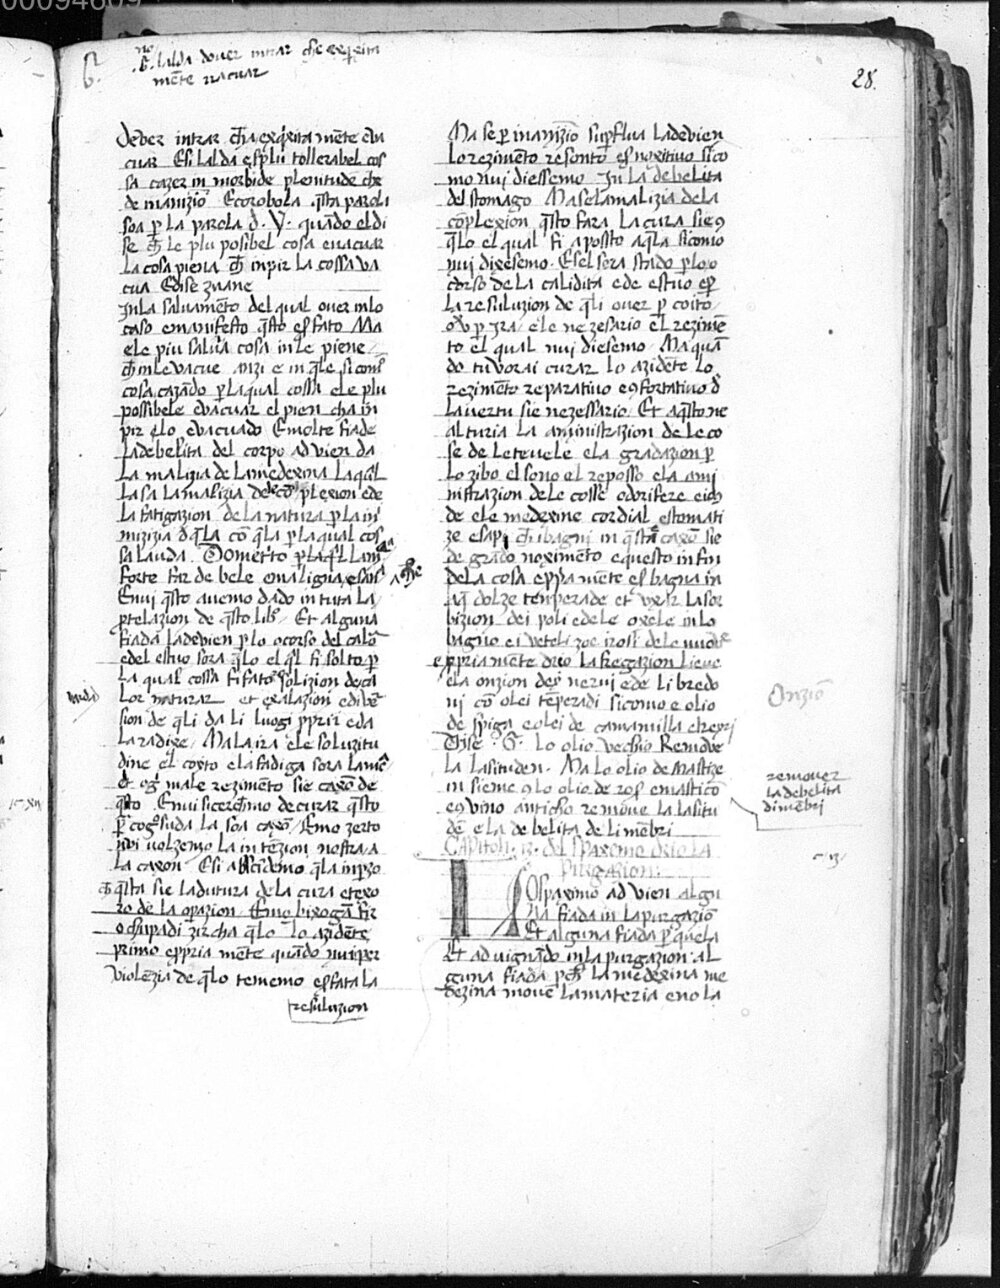 00094609
G. lalda dover intrar che exqrita
mēte vacuar
28.
Dever intrar cħa exqrita mente eva
cuar Esi lalda esplu tollerabel cos
sa cazer in morbide plenitude che
de inanizio Ecorobola qsta parola
soa p la parola d. y. quādo el di
se cħ le plu posibel cosa evacuar
la cosa piena cħ inpir la cossa va
cua Edise zuane
Inla salvamēto del qual over inlo
caso emanifesto qsto es fato Ma
ele piu salva cosa inle piene
cħ inle vacue anzi e in qle si com̄
cosa cazādo p laqual cossa ele plu
possibele evacuar el pien cha in
pir elo evacuado Emolte fiade
ladebelita del corpo advien da
la malizia de lamedexina laqual
lasa lamalizia dela cōplexion ede
la fatigazion dela natura p la ini
mizizia dqla cō qla p laqual cos
sa lauda
forte fir de bele omaligna
che
Enui qsto avemo dado in tuta la
prelazion de qsto lib̄ Et alguna
fiada ladevien p lo ocorso del calō
edel estuo sora qlo el ql fi solto p
la qual cossa fi fato solizion de ca
lor naturar et exalazion edibē
sion de qli da li luogi pprii eda
la radixe Mala ira ele soluzitu
dine el coyto ela fadiga sora lamē
et ogi male rezimēto sie caxō de
qsto Enui sicercħmo de curar qsto
p cogsuda la soa caxō Emo zerto
nui volzemo la intēzion nostra a
la caxon Esi ascidemo qla inpzo
cħ qsta sie ladutura dela cura etexo
ro de la opazion Emo bixogā fir
ochupadi zircha qlo lo azidēte
primo eppria mēte quādo nui per
violēzia de qlo tememo es fata la
resuluzion
Ma se p inanizio supflua ladevien
lo rezimēto resonto es noxitivo sico
mo nui diessemo In la debelita
del stomago Ma selamalizia dela
cōplexion qsto fara la cura sie 9
qlo el qual fi aposto aqla sicomo
nui dixesemo. Esel sera stado p lo o
corso de la calidita ede estuo es p
la resuluzion de qli over p coito
ov p ira ele nezesario el rezimē
to el qual nui diesemo Ma quā
do tu vorai curar lo azidēte lo
rezimēto reparativo e 9fortativo d
la vertu sie nezessario. Et aqsto ne
alturia la aministrazion de le co
se de letevele ela gradazion p
lo zibo el sono el reposso ela ami
nistrazion dele cosse odorifere eich
de ele medexine cordial estomati
ze esapi cħ ibagni in qsta caxō sie
de grādo noximēto e questo in fin
dela cosa eppa mēte es bagna in
aq dolze temperade et
bizion dei poli edele oxele in lo
bagno
eppria mēte drio la fregazion lieve
ela onzion dei nervi ede li bredo
ni cō olei tēperadi sicomo e olio
de spiga e olei de camamilla
Disse G. lo olio vechio Remove
la lasituden. Ma lo olio de mastize
in sieme 9 lo olio de rose emasticō
e 9 vino anticho remove la lasitu
dē e la debelita de li mēbri
Capitoli 13. del spaximo drio la
purgaxion.
Lo spaximo ad vien algu
na fiada in la purgaziō
Et alguna fiada p quela
Et ad vignādo inla purgazion al
guna fiada pcħ la medexina me
dezina move lamateria e no la
Onziō
remover
la debelita
dimēbri
c 13